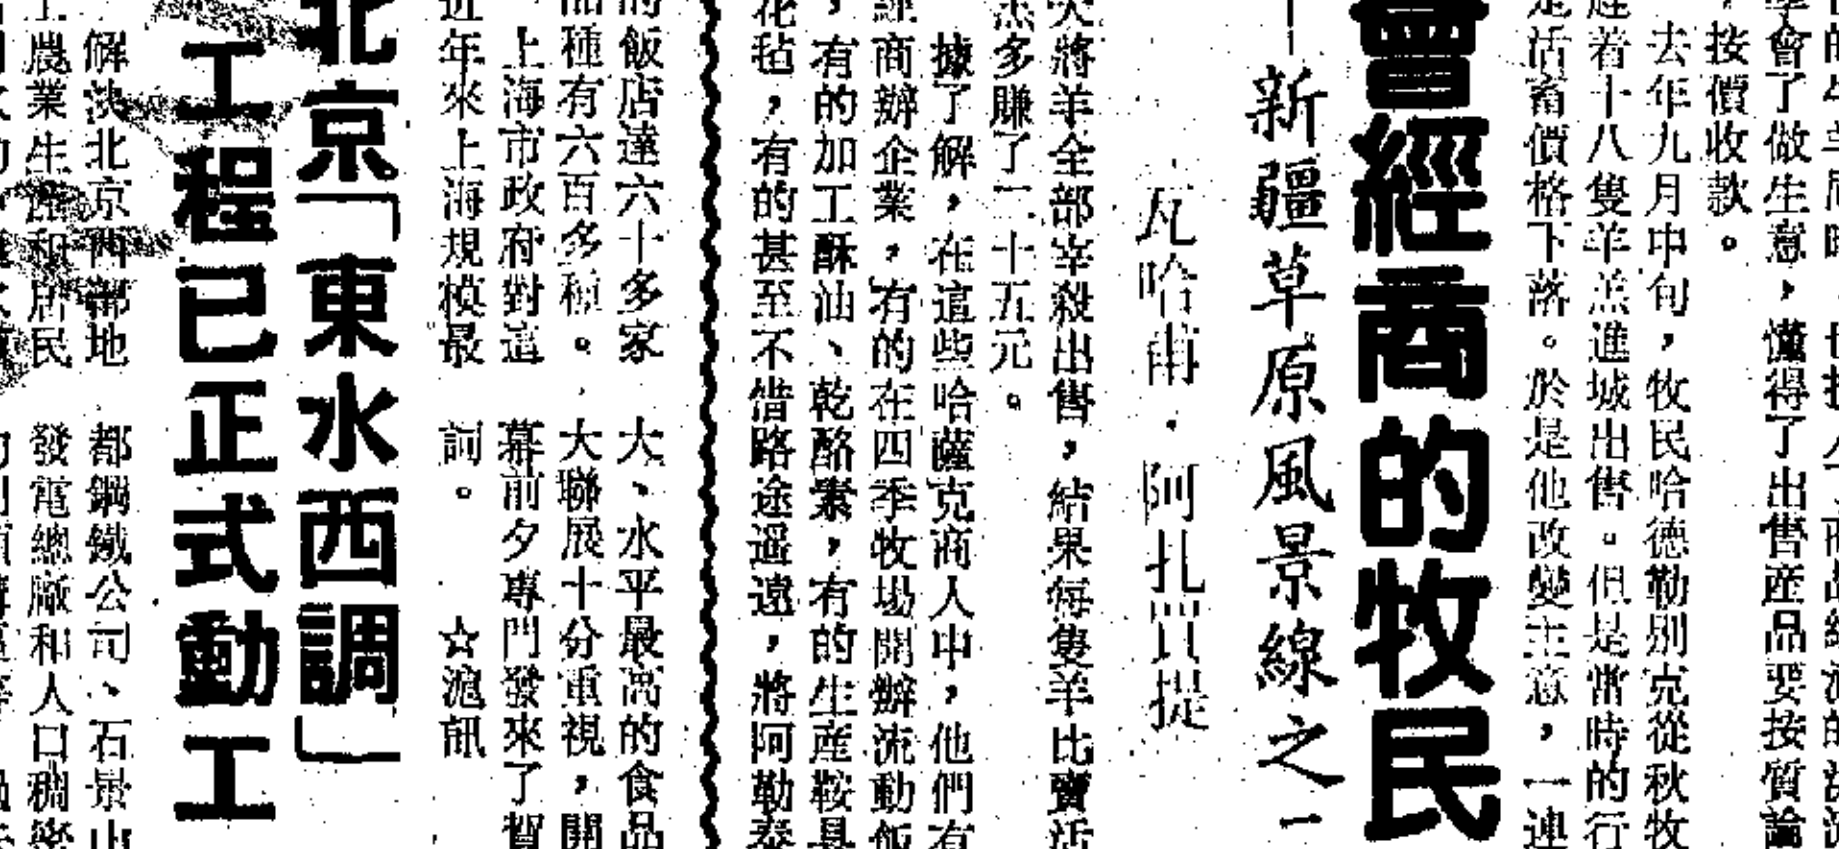 學會了做生意，懂得了出售産品要按質論
，按價收款。
去年九月中旬，牧民哈德勒别克從秋牧
趕着十八隻羊羔進城出售。但是當時的行
是活畜價格下落。於是他改變主意，一連
會經商的牧民
—新疆草原風景線之一
瓦哈甫·阿扎買提
天將羊全部宰殺出售，結果每隻羊比賣活
羔多賺了二十五元。
據了解，在這些哈薩克商人中，他們有
經商辦企業，有的在四季牧場開辦流動飯
，有的加工酥油、乾酪素，有的生産鞍具
花毡，有的甚至不惜路途遥遠，將阿勒泰
的飯店達六十多家
品種有六百多種。
上海市政府對這
近年來上海規模最
大、水平最高的食品
大聯展十分重視，開
幕前夕專門發來了賀
詞。 ☆滬訊
北京「東水西調」
工程已正式動工
解決北京西部地
工農業生産和居民
都鋼鐵公司、石景山
發電總廠和人口稠密